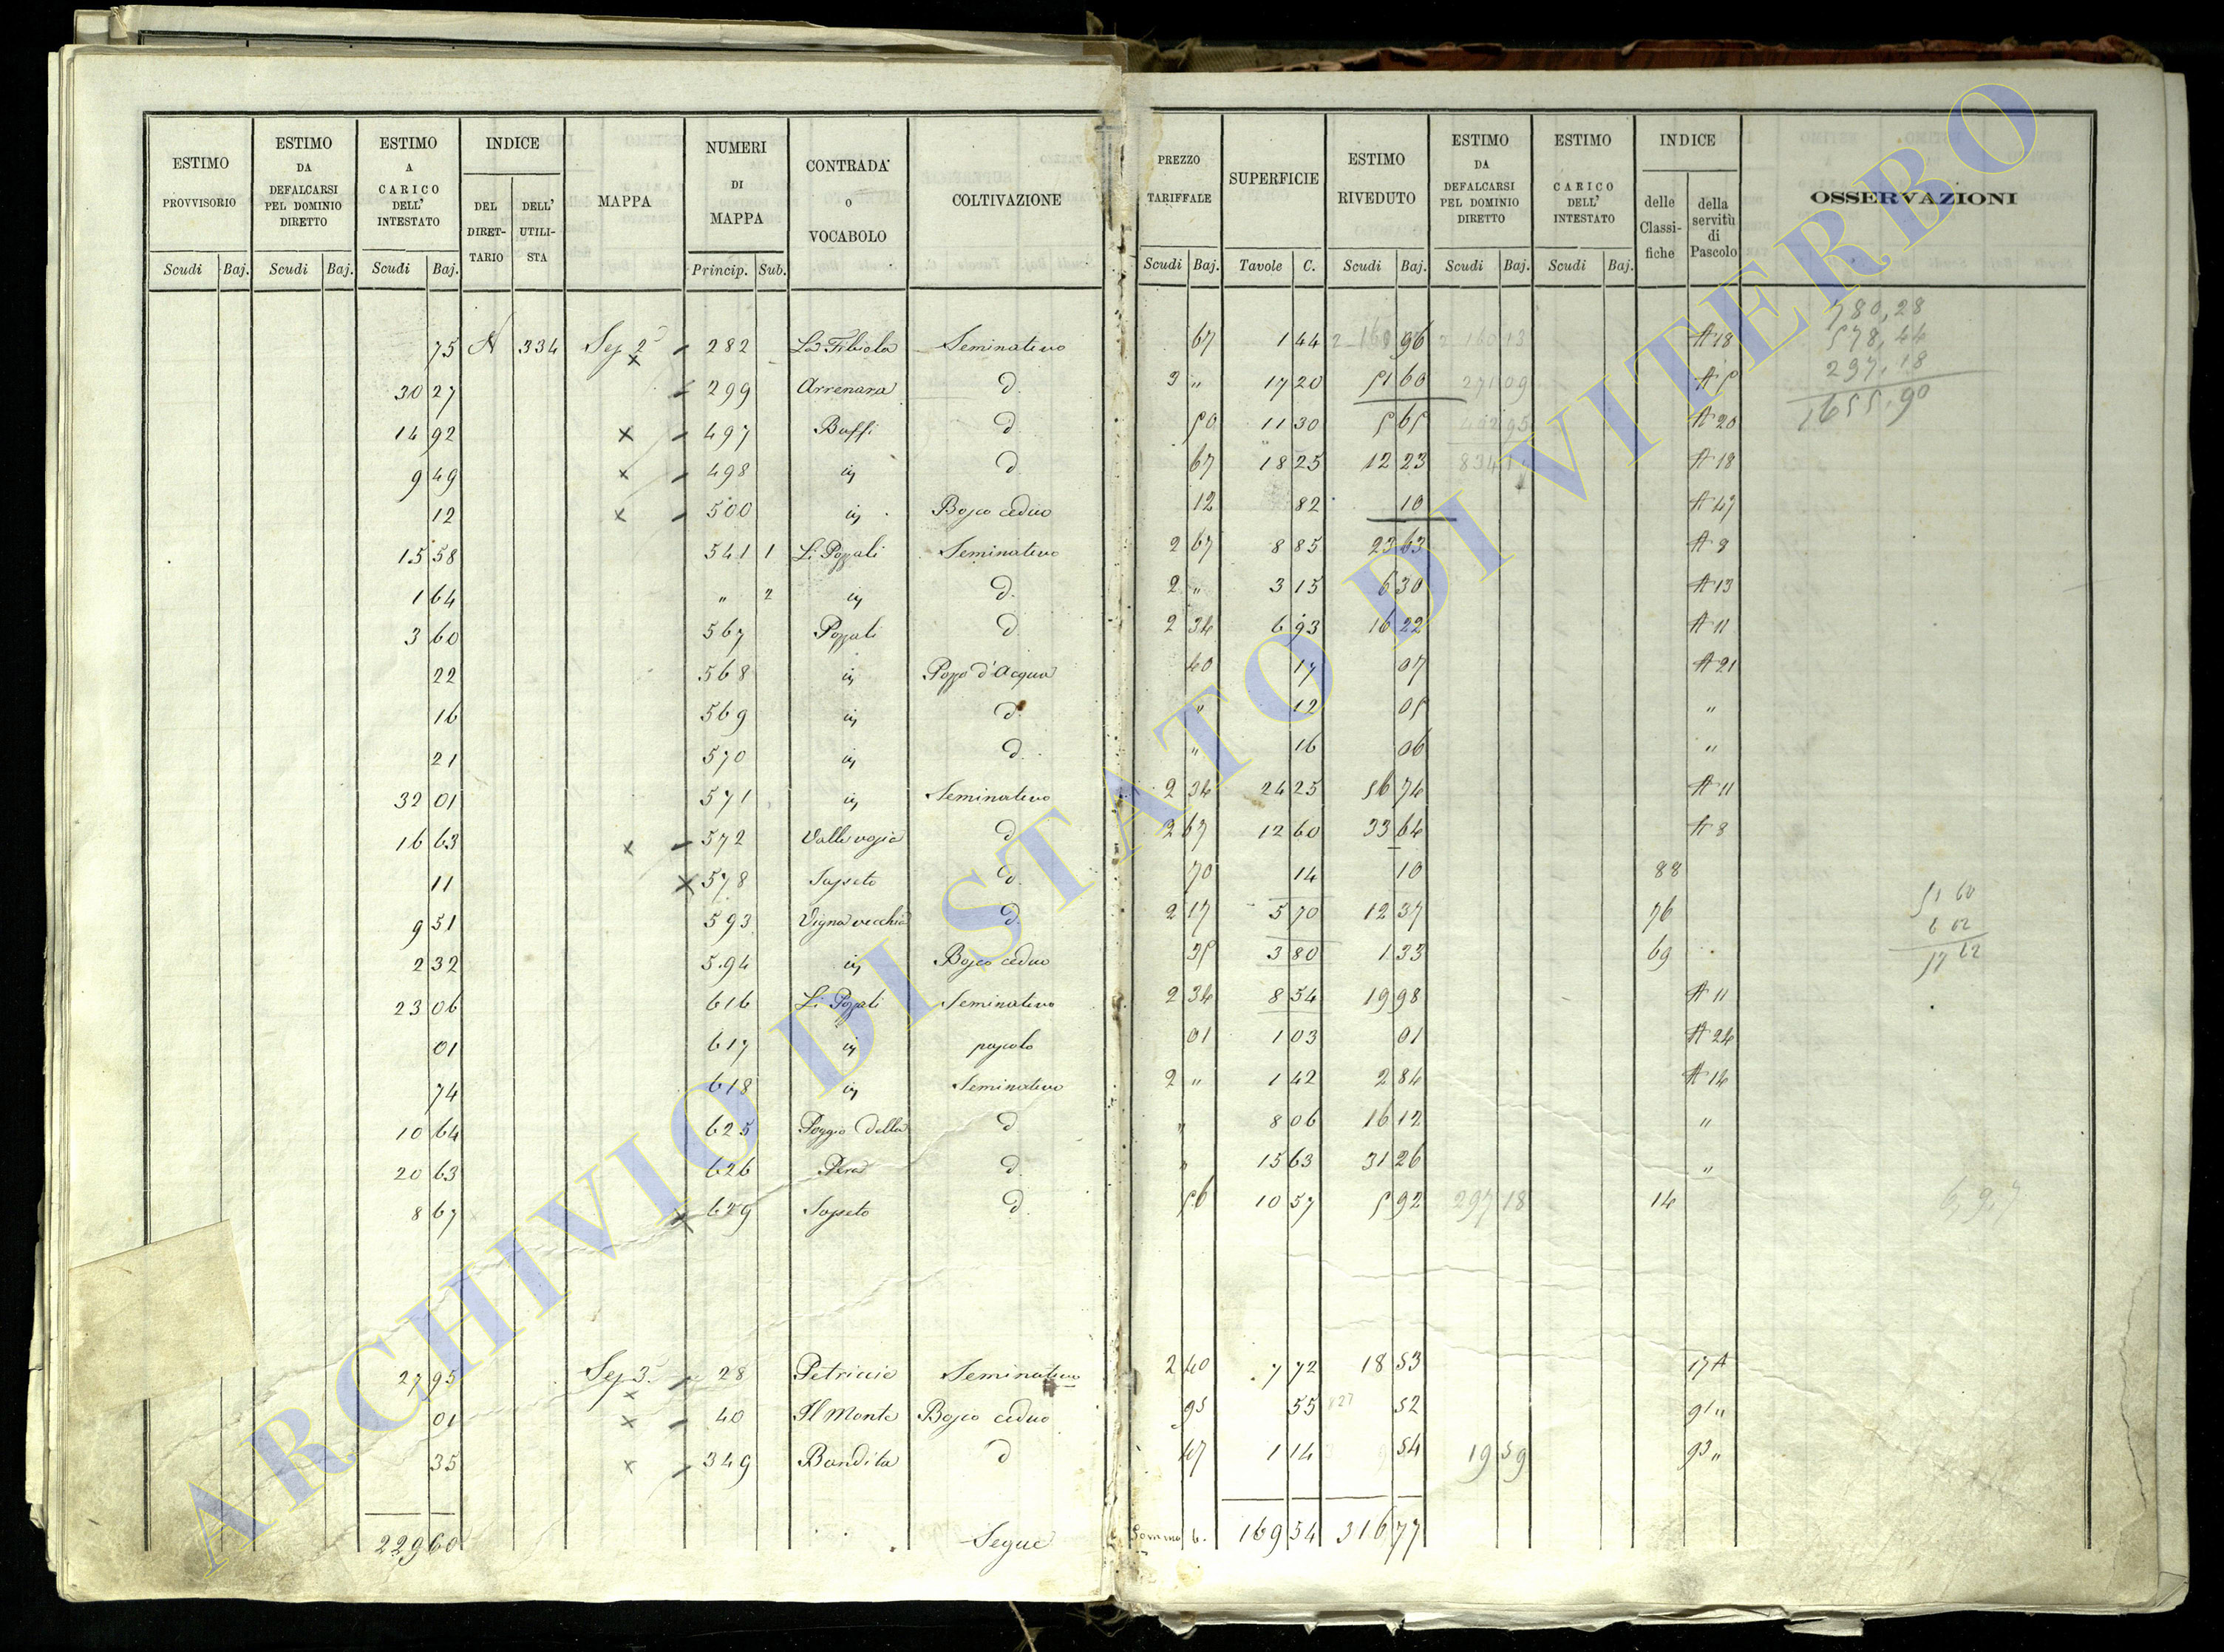 ESTIMO PROVVISORIO
ESTIMO DA DEFALCARSI PEL DOMINIO DIRETTO
ESTIMO A CARICO DELL' INTESTATO
INDICE
DEL DIRET-TARIO
DELL' UTILI-STA
MAPPA
NUMERI DI MAPPA
CONTRADA O VOCABOLO
COLTIVAZIONE
PREZZO TARIFFALE
SUPERFICIE
ESTIMO RIVEDUTO
ESTIMO DA DEFALCARSI PEL DOMINIO DIRETTO
ESTIMO CARICO DELL' INTESTATO
INDICE
delle Classi-fiche
della servitù di Pascolo
OSSERVAZIONI
Scudi Baj. Scudi Baj. Scudi Baj. Princip. Sub. Scudi Baj. Tavole C. Scudi Baj. Scudi Baj. Scudi Baj.
780,28
578,44
297,18
1655,90
75 N 334 Sez 2ª 282 La Fibiola Seminativo 67 1 44 96 A 18
30 27 299 Arrenara d. 3 " 17 20 51 60 271 09 A 5
14 92 x 497 Buffi d. 50 11 30 5 65 A 20
9 49 x 498 d 67 18 25 12 23 834 A 18
12 x 500 Bosco ceduo 12 82 10 A 47
15 58 541 1 Li Pozzali Seminativo 2 67 8 85 23 63 A 9
1 64 " 2 d. 2 " 3 15 6 30 A 13
3 60 567 Pozzali d. 2 34 6 93 16 22 A 11
22 568 Pozzo d'Acqua 40 17 07 A 21
16 569 d. " 12 05 "
21 570 d. " 16 06 "
32 01 571 Seminativo 2 34 24 25 56 74 A 11
16 63 x 572 d 2 67 12 60 33 64 A 8
11 x 578 Sapeto d. 70 14 10 88
9 51 593 Vigna vecchia d. 2 17 5 70 12 37 76
51 60
6 02
57 62
2 32 594 Bosco ceduo 35 3 80 1 33 69
23 06 616 Li Pozzali Seminativo 2 34 8 54 19 98 A 11
01 617 pascolo 01 1 03 01 A 24
74 618 Seminativo 2 " 1 42 2 84 A 14
10 64 625 Poggio della d " 8 06 16 12 "
20 63 626 Pera d. " 15 63 31 26 "
8 67 x 629 Sapeto d. 56 10 57 5 92 297 18 14
6,9,7
27 95 Sez 3ª x 28 Petriccie Seminativo 2 40 7 72 18 53 17 A
01 x 40 Il Monte Bosco ceduo 95 55 52 91 "
35 x 349 Bandita d 47 1 14 54 19 59 93 "
229 60 Segue Somma 169 54 316 77
ARCHIVIO DI STATO DI VITERBO